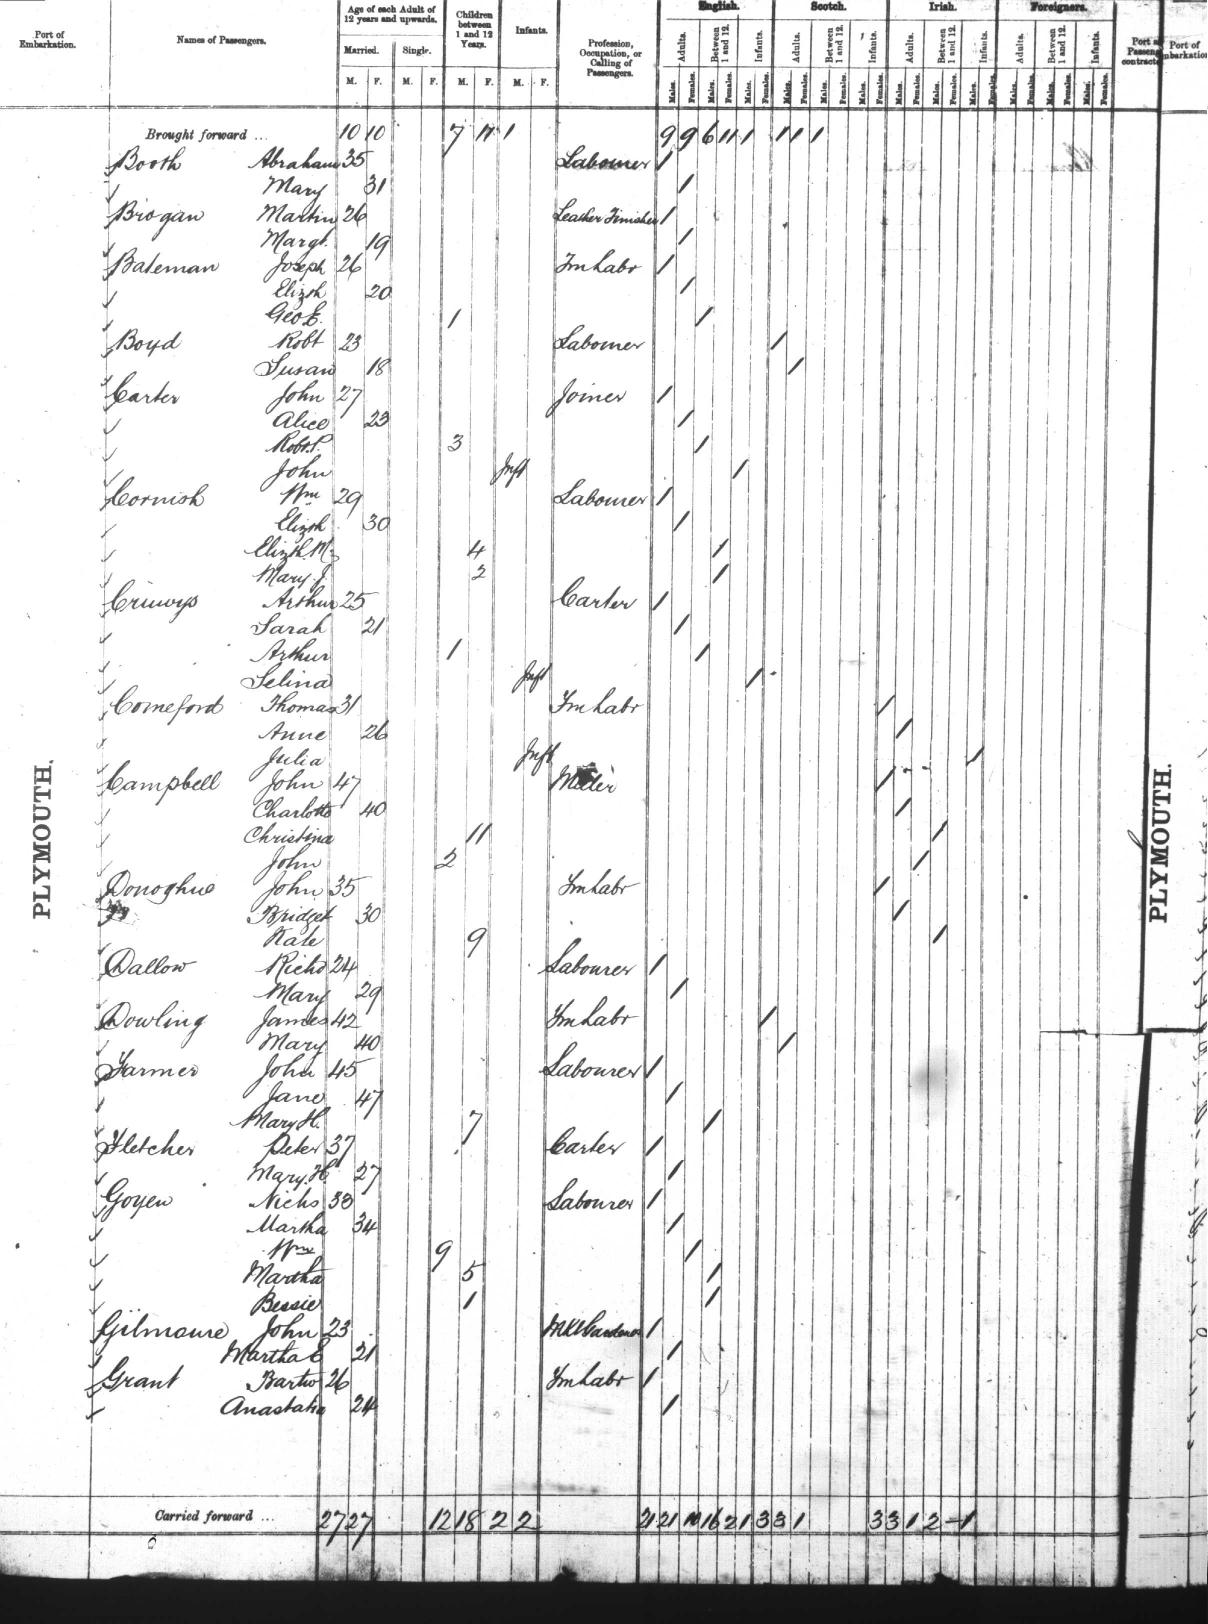 Port of Embarkation. Names of Passengers. Age of each Adult of 12 years and upwards. Children between 1 and 12 Years. Infants. Profession, Occupation, or Calling of Passengers. English. Scotch. Irish. Foreigners. Port of Embarkation
Married. Single. Adults. Between 1 and 12. Infants. Adults. Between 1 and 12. Infants. Adults. Between 1 and 12. Infants. Adults. Between 1 and 12. Infants.
M. F. M. F. M. F. M. F. Males. Females. Males. Females. Males. Females. Males. Females. Males. Females. Males. Females. Males. Females. Males. Females. Males. Females. Males. Females. Males. Females. Males. Females.
Brought forward ... 10 10 7 11 1 9 9 6 11 1 1 1 1
Booth Abraham 35 Labourer 1
Mary 31 1
Brogan Martin 26 Leather Finisher 1
Margt. 19 1
Bateman Joseph 26 Fm Labr 1
Elizth 20 1
Geo E. 1 1
Boyd Robt 23 Labourer 1
Susan 18 1
Carter John 27 Joiner 1
Alice 23 1
Robt. P. 3 1
John Inft 1
Cornish Wm 29 Labourer 1
Elizth 30 1
Elizth. M. 4 1
Mary J. 2 1
Cruwys Arthur 25 Carter 1
Sarah 21 1
Arthur 1 1
Selina Inft 1
Comeford Thomas 31 Fm Labr 1
Anne 26 1
Julia Inft 1
Campbell John 47 1
Charlotte 40 1
Christina 11 1
John 2 1
Donoghue John 35 Fm Labr 1
Bridget 30 1
Kate 9 1
Dallow Richd 24 Labourer 1
Mary 29 1
Dowling James 42 Fm Labr 1
Mary 40 1
Farmer John 45 Labourer 1
Jane 47 1
Mary H. 7 1
Fletcher Peter 37 Carter 1
Mary H 27 1
Goyen Nichs 33 Labourer 1
Martha 34 1
Wm 9 1
Martha 5 1
Bessie 1 1
Gilmoure John 23 Mkt Gardener 1
Martha E 21 1
Grant Bartw 26 Fm Labr 1
Anastatia 24 1
PLYMOUTH.
PLYMOUTH.
Carried forward ... 27 27 12 18 2 2 21 21 10 16 2 1 3 3 1 3 3 1 2 - 1